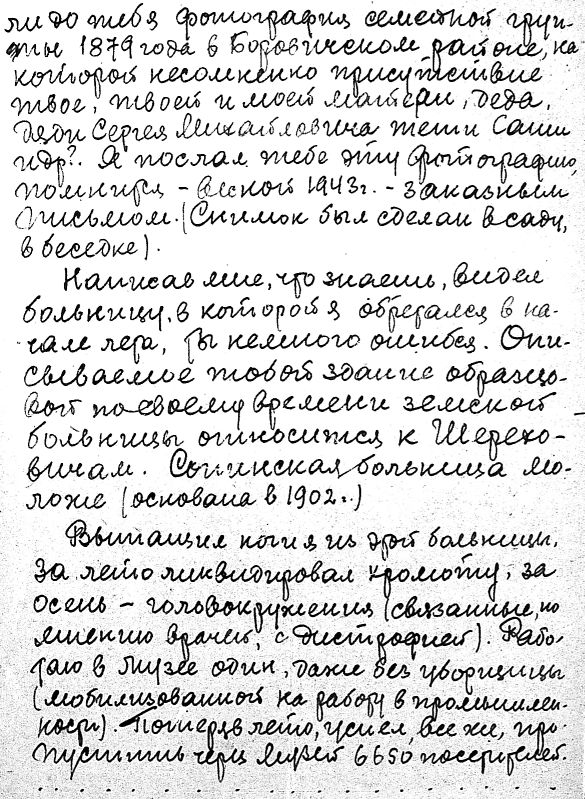 ли до тебя фотография семейной груп-
пы 1879 года в Боровичском районе, на
которой несомненно присутствие
твое, твоей и моей матери, деда,
дяди Сергея Михайловича тети Саши
и др? Я послал тебе эту фотографию,
помнится – весной 1943 г. – заказным
письмом. (Снимок был сделан в саду,
в беседке).
Написав мне, что знаешь, видел
больницу, в которой я обретался в на-
чале лета, ты немного ошибся. Опи-
сываемое тобой здание образцо-
вой по своему времени земской
больницы относится к Шерехо-
вичам. Сопинская больница мо-
ложе (основана в 1902 г.)
Вытащил ноги я из этой больницы,
за лето ликвидировал хромоту, за
осень – головокружения (связанные, по
мнению врачей, с дистрофией). Рабо-
таю в Музее один, даже без уборщицы
(мобилизованной на работу в промышлен-
ности). Потеряв лето, успел, все же, про-
пустить через Музей 6650 посетителей.
. . . . . . . . . . . . . . . . .